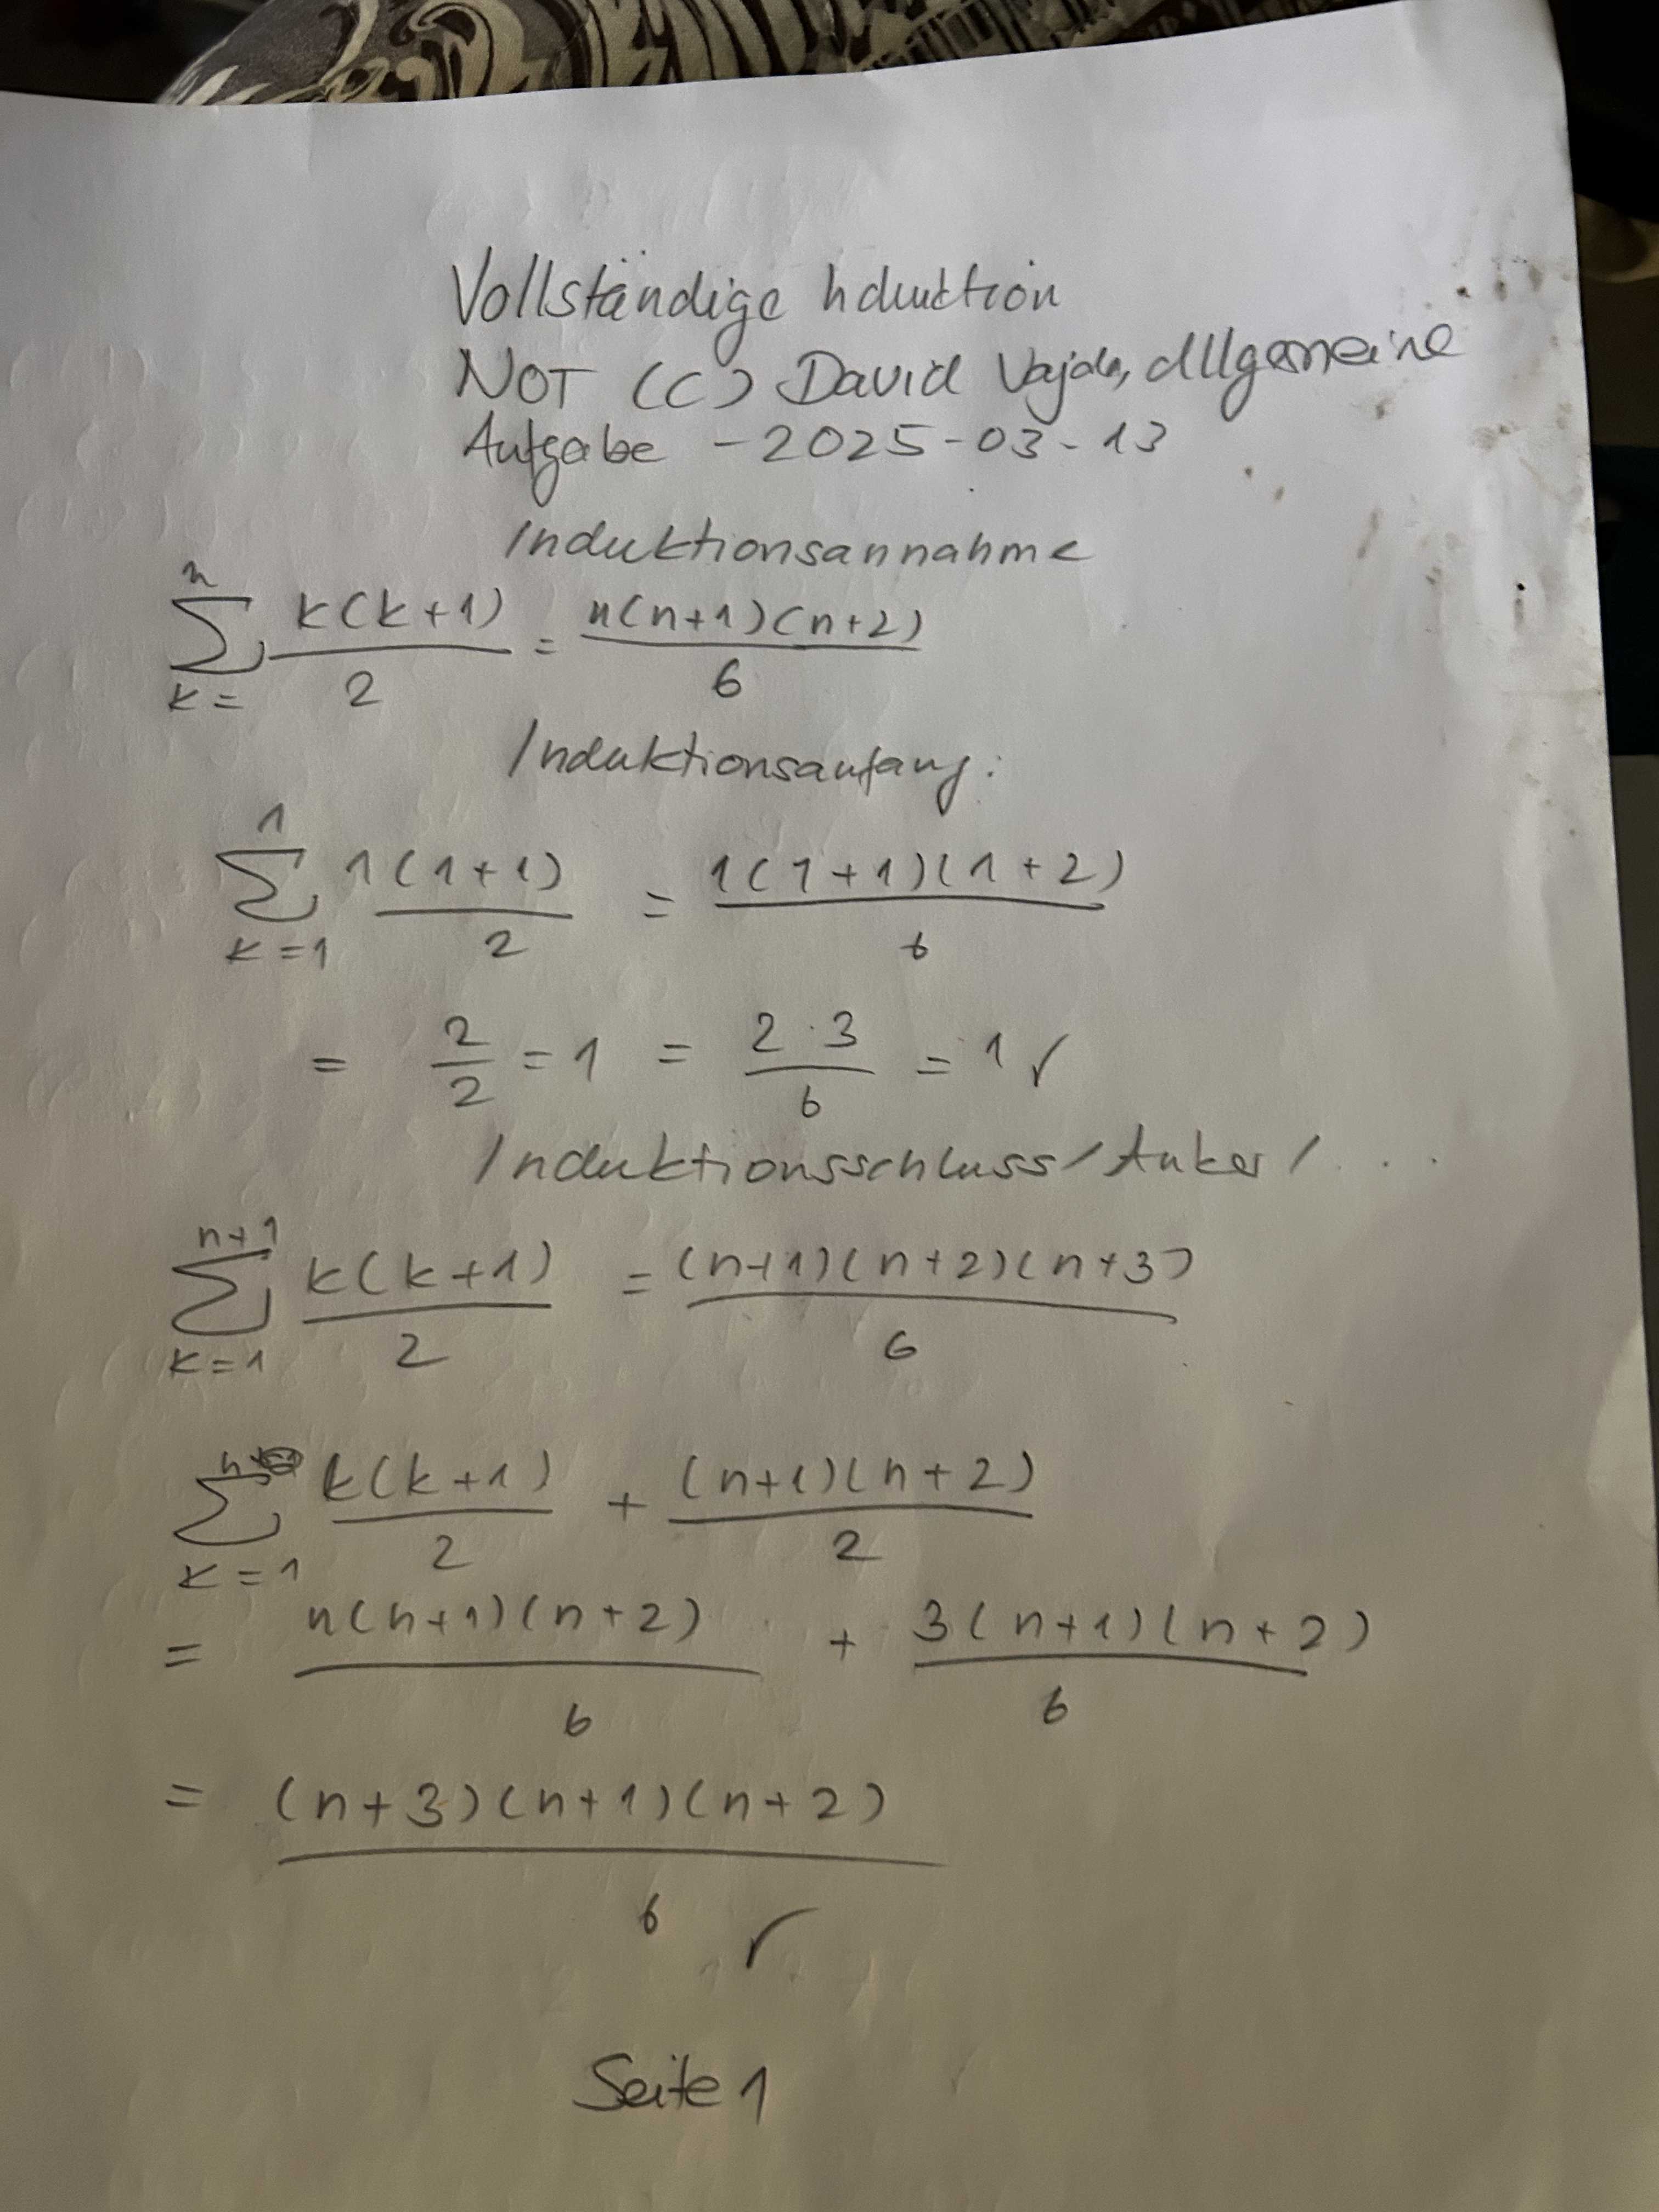 Vollständige Induktion
NOT (C) David Vajda, Allgemeine
Aufgabe - 2025-03-13
Induktionsannahme
n
∑ k(k+1)/2 = n(n+1)(n+2)/6
k=
Induktionsanfang:
1
∑ 1(1+1)/2 = 1(1+1)(1+2)/6
k=1
= 2/2 = 1 = 2·3/6 = 1 ✓
Induktionsschluss/Anker/...
n+1
∑ k(k+1)/2 = (n+1)(n+2)(n+3)/6
k=1
n
∑ k(k+1)/2 + (n+1)(n+2)/2
k=1
= n(n+1)(n+2)/6 + 3(n+1)(n+2)/6
= (n+3)(n+1)(n+2)/6 ✓
Seite 1